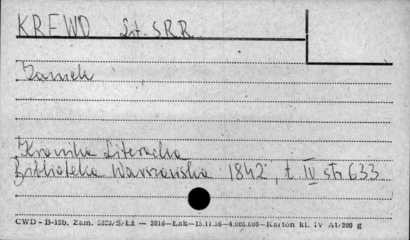 KREWO Lit. SRR
Zamek
Kronika Literacka
Biblioteka Warszawska 1842, t. IV str 633
CWD - B-15b, Zam. 5323/S/Łż — 2016 — Łak — 15.11.56 — 4.000.000 — Karton kl. IV A1/200 g